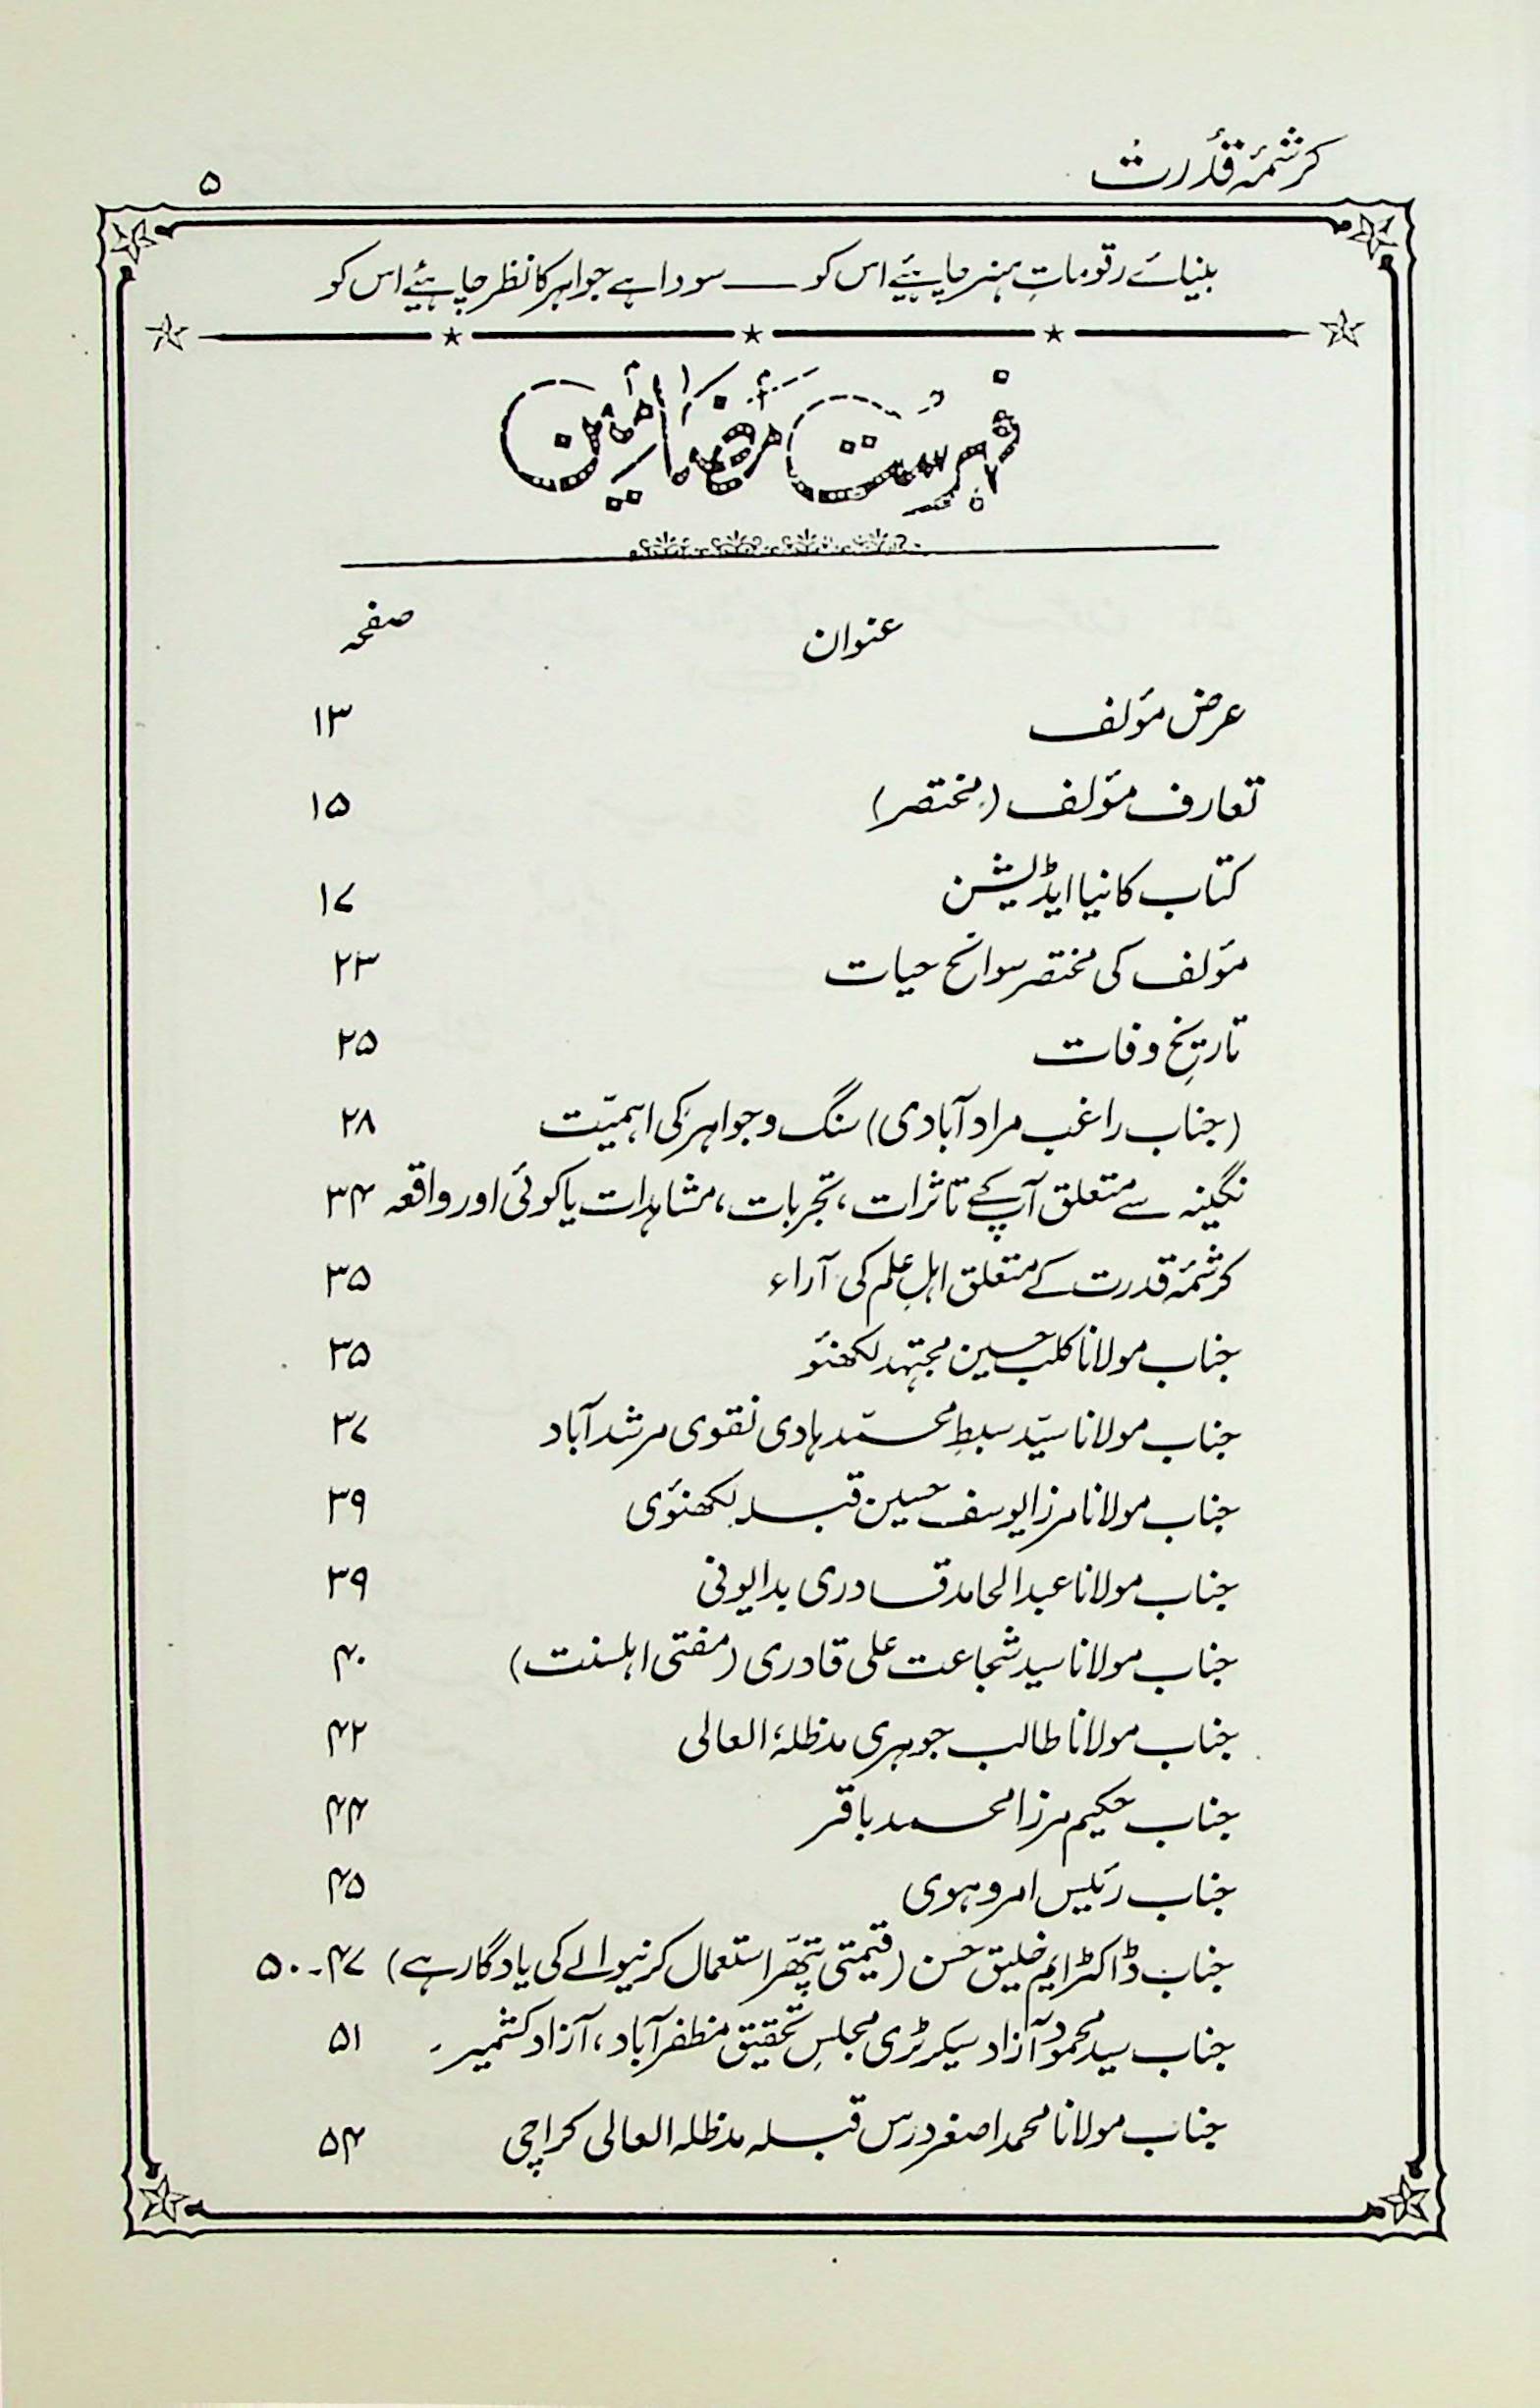 کرشمۂ قدرت ۵
بینائے رقوماتِ ہنر چاہیئے اس کو — سودا ہے جواہر کا نظر چاہیئے اس کو
فہرست مضامین
عنوان صفحہ
عرض مؤلف ۱۳
تعارف مؤلف (مختصر) ۱۵
کتاب کا نیا ایڈیشن ۱۷
مؤلف کی مختصر سوانح حیات ۲۳
تاریخِ وفات ۲۵
(جناب راغب مراد آبادی) سنگ و جواہر کی اہمیّت ۲۸
نگینہ سے متعلق آپ کے تاثرات، تجربات، مشاہدات یا کوئی اور واقعہ ۳۴
کرشمۂ قدرت کے متعلق اہلِ علم کی آراء ۳۵
جناب مولانا کلب حسین مجتہد لکھنؤ ۳۵
جناب مولانا سیّد سبطِ محمّد ہادی نقوی مرشد آباد ۳۷
جناب مولانا مرزا یوسف حسین قبلہ لکھنؤی ۳۹
جناب مولانا عبدالحامد قادری بدایونی ۳۹
جناب مولانا سید شجاعت علی قادری (مفتی اہلسنت) ۴۰
جناب مولانا طالب جوہری مدظلہٗ العالی ۴۲
جناب حکیم مرزا محمد باقر ۴۴
جناب رئیس امروہوی ۴۵
جناب ڈاکٹر ایم خلیق حسن (قیمتی پتھّر استعمال کرنیوالے کی یادگار ہے) ۴۷۔۵۰
جناب سید محمود آزاد سیکرٹری مجلسِ تحقیق مظفر آباد، آزاد کشمیر۔ ۵۱
جناب مولانا محمد اصغر درس قبلہ مدظلہ العالی کراچی ۵۴